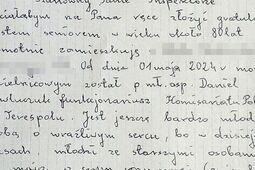 Szanowny Panie Inspektorze
chciałabym na Pana ręce złożyć gratul
estem seniorem w wieku około 80 lat
samotnie zamieszkują
Od dnia 01 maja 2024 r moj
dzielnicowym został p. mł. asp. Daniel
funkcjonariusz Komisariatu Pol
Terespolu. Jest jeszcze bardzo młod
obą o wrażliwym sercu, bo w dzisiej
asach, młodzi ze starszymi osobami